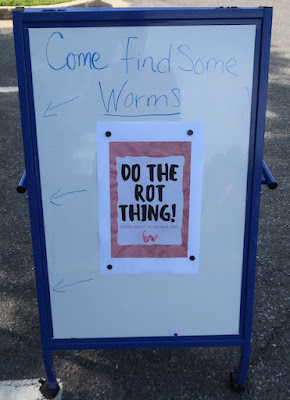 Come Find Some
Worms
DO THE
ROT
THING!